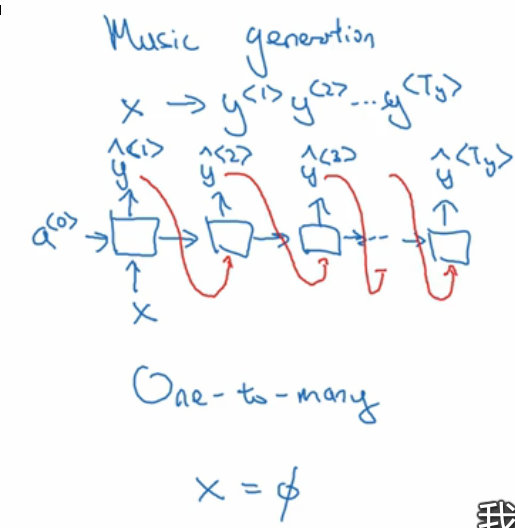 Music generation
x → y<1> y<2> ... y<Ty>
ŷ<1> ŷ<2> ŷ<3> ŷ<Ty>
a<0>
x
One-to-many
x = ϕ
我